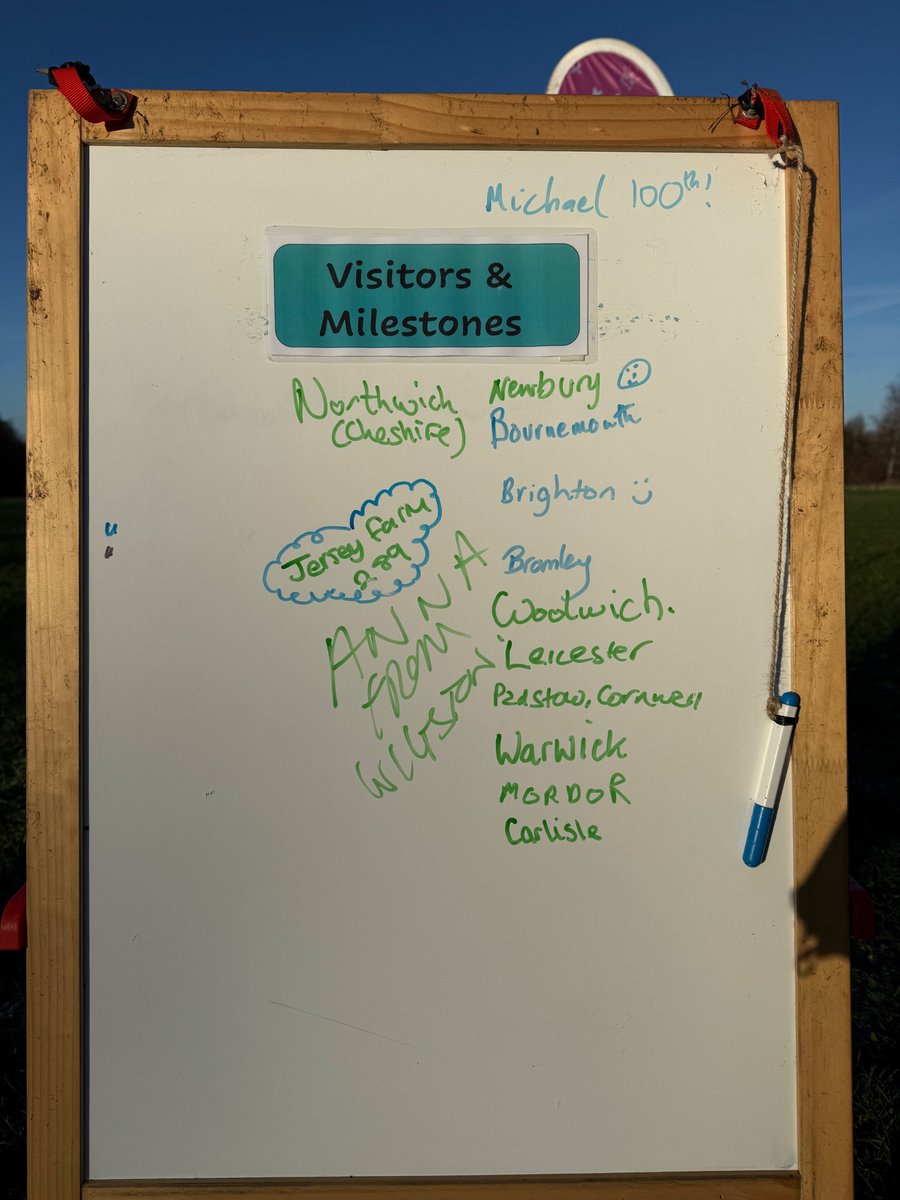 Michael 100th!
Visitors &
Milestones
Northwich
(Cheshire)
Jersey Farm
ANNA
FROM
WIGSTON
Newbury
Bournemouth
Brighton :)
Bromley
Woolwich.
Leicester
Padstow, Cornwall
Warwick
MORDOR
Carlisle